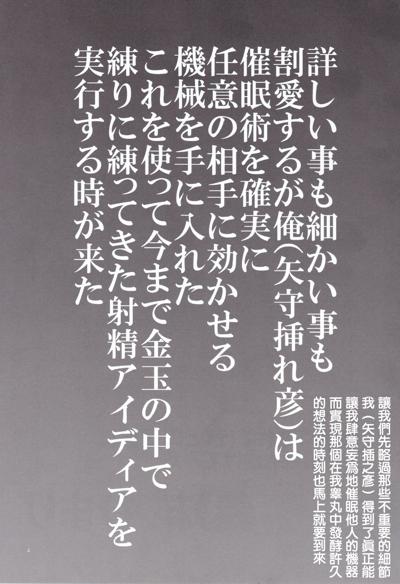 詳しい事も細かい事も
割愛するが俺(矢守挿れ彦)は
催眠術を確実に
任意の相手に効かせる
機械を手に入れた
これを使って今まで金玉の中で
練りに練ってきた射精アイディアを
実行する時が来た
讓我們先略過那些不重要的細節
我（矢守插之彦）得到了眞正能
讓我肆意妄爲地催眠他人的機器
而實現那個在我睾丸中發酵許久
的想法的時刻也馬上就要到來